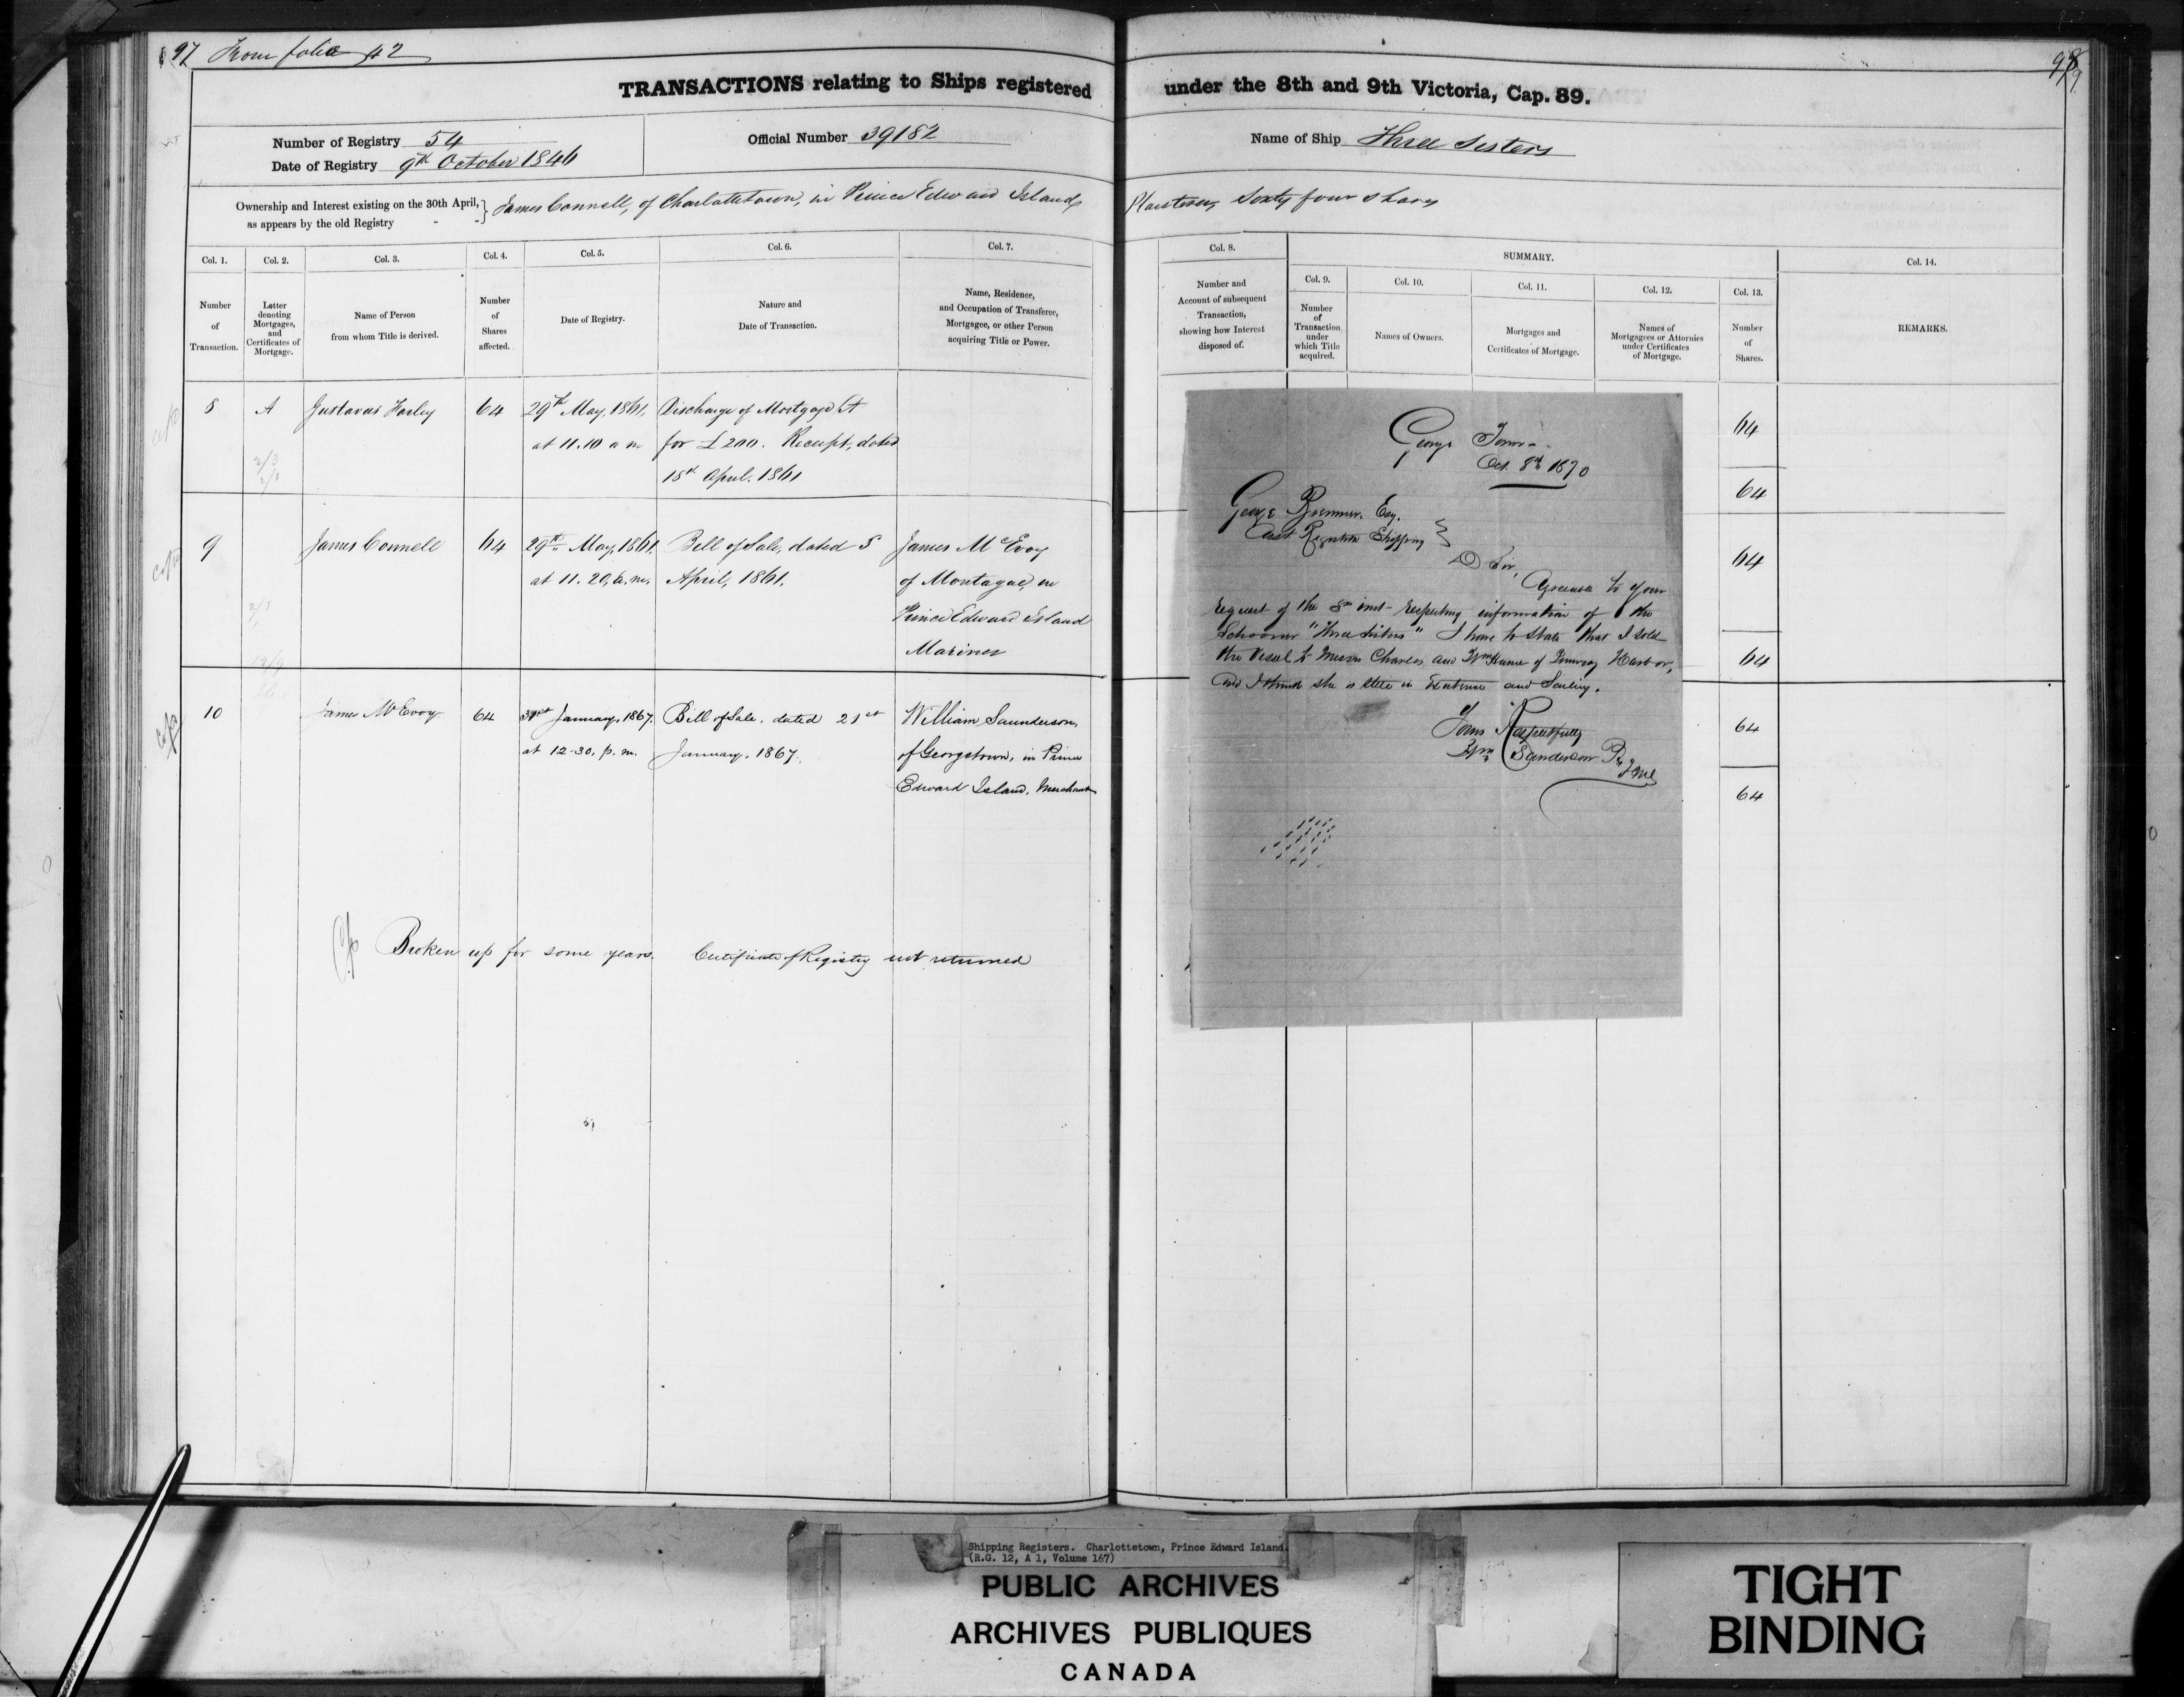 97 From folio 42
98
TRANSACTIONS relating to Ships registered under the 8th and 9th Victoria, Cap. 89.
Number of Registry 54
Date of Registry 9th October 1846
Official Number 39182
Name of Ship Three Sisters
Ownership and Interest existing on the 30th April, as appears by the old Registry } James Connell, of Charlottetown, in Prince Edward Island, Plasterer, Sixty four shares
Col. 1. Number of Transaction.
Col. 2. Letter denoting Mortgages, and Certificates of Mortgage.
Col. 3. Name of Person from whom Title is derived.
Col. 4. Number of Shares affected.
Col. 5. Date of Registry.
Col. 6. Nature and Date of Transaction.
Col. 7. Name, Residence, and Occupation of Transferee, Mortgagee, or other Person acquiring Title or Power.
Col. 8. Number and Account of subsequent Transaction, showing how Interest disposed of.
SUMMARY.
Col. 9. Number of Transaction under which Title acquired.
Col. 10. Names of Owners.
Col. 11. Mortgages and Certificates of Mortgage.
Col. 12. Names of Mortgagees or Attornies under Certificates of Mortgage.
Col. 13. Number of Shares.
Col. 14. REMARKS.
8 A Gustavus 64 29th May, 1861, Discharge of Mortgage A
at 11.10 a m for £200. Receipt, dated
18th April. 1861
9 James Connell 64 29th May, 1861, Bill of Sale, dated 5 James McEvoy
at 11.20, a.m. April, 1861. of Montague, in
Prince Edward Island
Mariner
10 James McEvoy 64 31st January, 1867, Bill of Sale, dated 21st William Saunderson,
at 12-30, p.m. January, 1867. of Georgetown, in Prince
Edward Island, Merchant
Broken up for some years. Certificate of Registry not returned
George Town
Oct. 8th 1870
George Esq.
Shipping
D Sir,
to your
request of the 5th inst respecting information of the
Schooner "Three Sisters" I have to state that I sold
the Vessel to Messrs Charles and Wm of Harbor,
and I think she is still in Existence and Sailing.
Yours Respectfully
Wm Sanderson
64
64
64
64
64
64
Shipping Registers. Charlottetown, Prince Edward Island.
(R.G. 12, A 1, Volume 167)
PUBLIC ARCHIVES
ARCHIVES PUBLIQUES
CANADA
TIGHT
BINDING